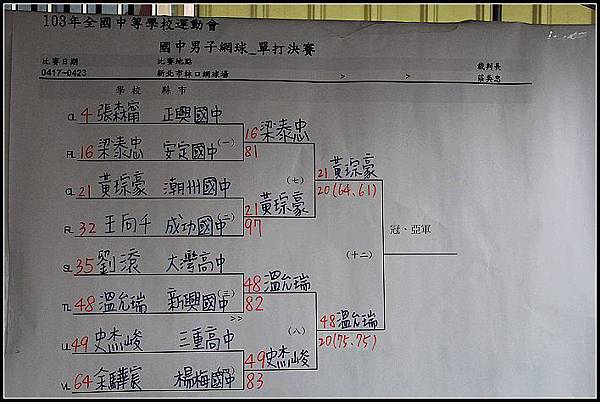 103年全國中等學校運動會
國中男子網球_單打決賽
比賽日期 比賽地點 裁判長
0417-0423 新北市林口網球場 > > 莊吳忠
學校 縣市
CL 4 張森甯 正興國中
(一) 16 梁泰忠
FL 16 梁泰忠 安定國中 81
(七) 21 黃琮豪
CL 21 黃琮豪 潮州國中 20(64,61)
(二) 21 黃琮豪
FL 32 王向千 成功國中 97
(十二) 冠、亞軍
SL 35 劉滾 大灣高中
(三) 48 溫允瑞
TL 48 溫允瑞 新興國中 82
>>
(八) 48 溫允瑞
LL 49 史杰峻 三重高中 20(75,75)
49 史杰峻
VL 64 余驊宸 楊梅國中 83